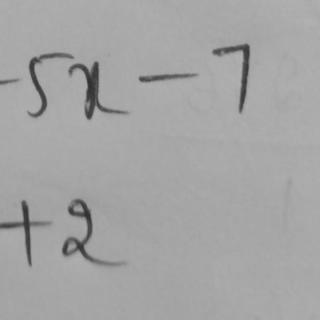 -5x - 7
+ 2